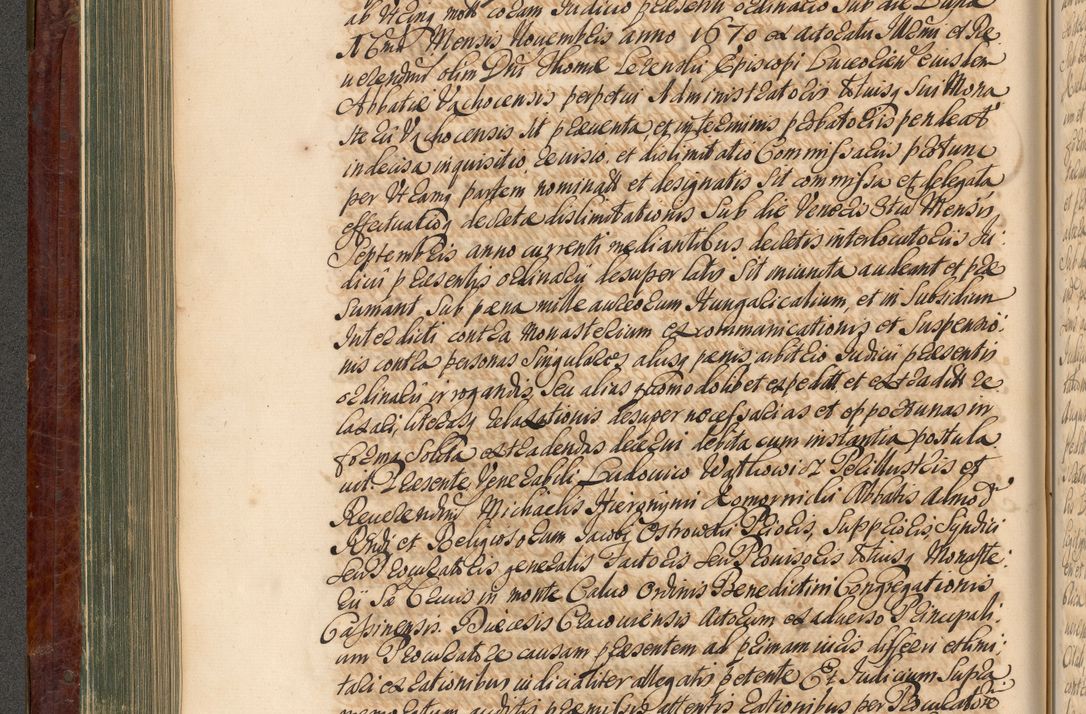 ab Utrinq mott coram Judicio præsenti ordinario Sub die Lunæ
Mensis Novembris anno 1670 ex actoratu Illrmi et Re
verendmi olim Dni Thomæ Leżenskii Episcopi Luceorien ejusdem
Abbatiæ Vąchocensis perpetui Administratoris totiusq Sui Mona
sterii Vąchocensis ut præventa, et in terminis probatoriis pendeat
indecisa inquisitio, revisio, et dislimitatio Commissariis
per Utramq partem nominatt et designatis Sit commissa et delegata
effectuatioq decreti dislimitationis Sub die Veneris 8tia Mensis
Septembris anno currenti mediantibus decretis interlocutoriis Ju:
dicii præsentis ordinarii desuper latis Sit injuncta audeant et præ
sumant, Sub pæna mille aureorum Hungaricalium, et in Subsidium
Interdicti contra Monasterium excommunicationis et Suspensio:
nis contra personas Singulares aliisq pænis arbitrio Judicii præsentis
ordinarii irrogandis, Seu alias quomodolibet expeditt et extraditt re
laxari, literasq relaxationis desuper necessarias et opportunas in
forma Solita extradendas decerni debita cum instantia postula
vit. Præsente Venerabili Ludovico Wąthowicz Perillustris et
Reverendmi Michaelis Hieronymi Komornicki Abbatis Admod
Rndi et Religiosorum Jacobi Ostrowski Prioris, Supprioris, Syndici
Seu Procuratoris generalis Factoris Seu Provisoris totiusq Monaste:
rii Sæ Crucis in monte Calvo Ordinis S. Benedictini Congregationis
Cassinensis Diæcesis Cracoviensis Actorum ex adverso Principali:
um Procuratore causam præsentem ad primam juris differri et limi:
tari ex rationibus judicialiter allegatis petente Et Judicium Supra
memoratum auditis præmissis attentis rationibus per Procuratore